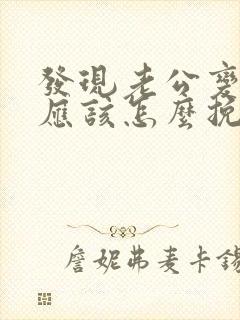 發現老公變
應該怎麼挽
詹妮弗麥卡錫